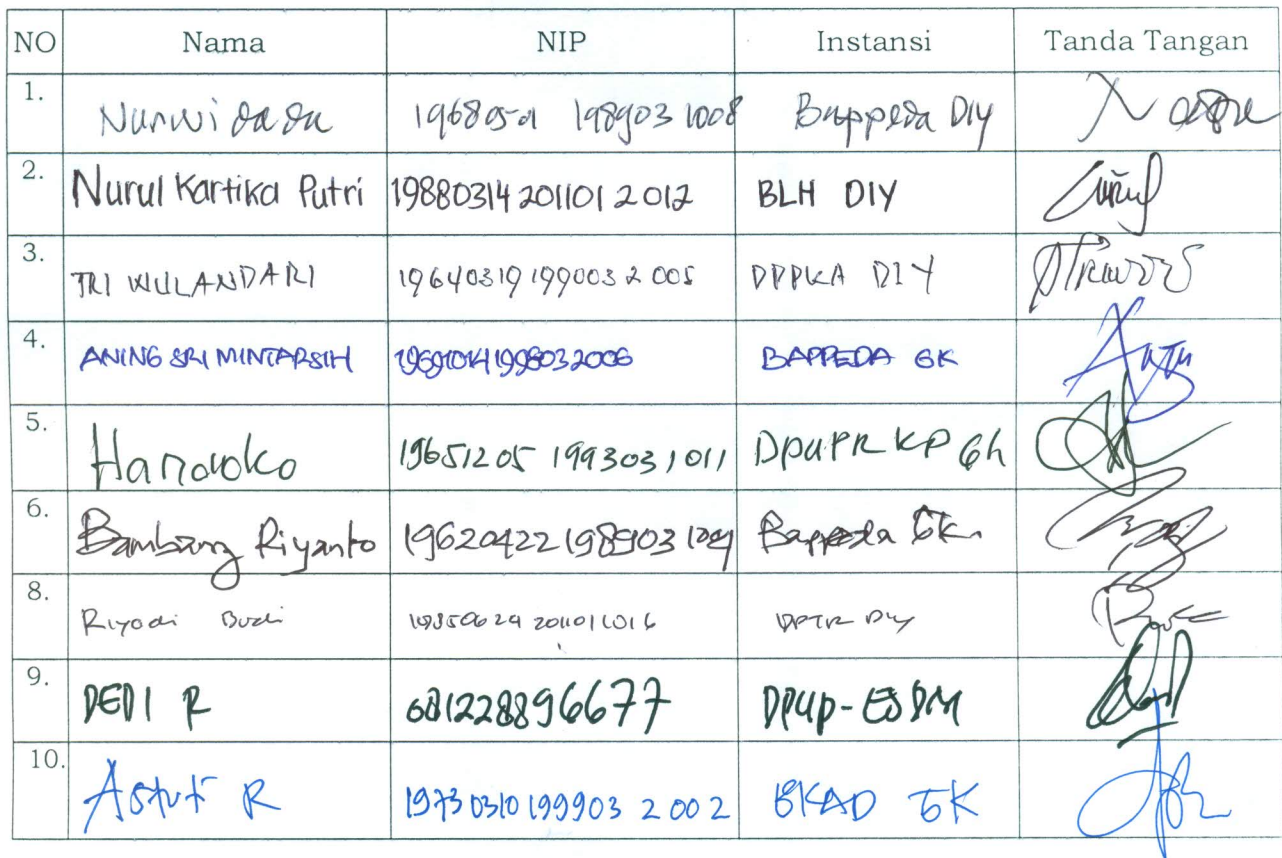 NO Nama NIP Instansi Tanda Tangan
1. Nurwidada 19680501 198903 1008 Bappeda DIY
2. Nurul Kartika Putri 19880314 201101 2 012 BLH DIY
3. TRI WULANDARI 19640319 199003 2 005 DPPKA DIY
4. ANING SRI MINTARSIH 196910141998032006 BAPPEDA GK
5. Handoko 19651205 199303 1 011 DPUPR KP GK
6. Bambang Riyanto 19620422 198903 1009 Bappeda GK
8. Riyadi Budi 19850624 201101 1 016 DPTR DIY
9. DEDI R 081228896677 DPUP-ESDM
10. Astuti R 19730310 199903 2 002 BKAD GK